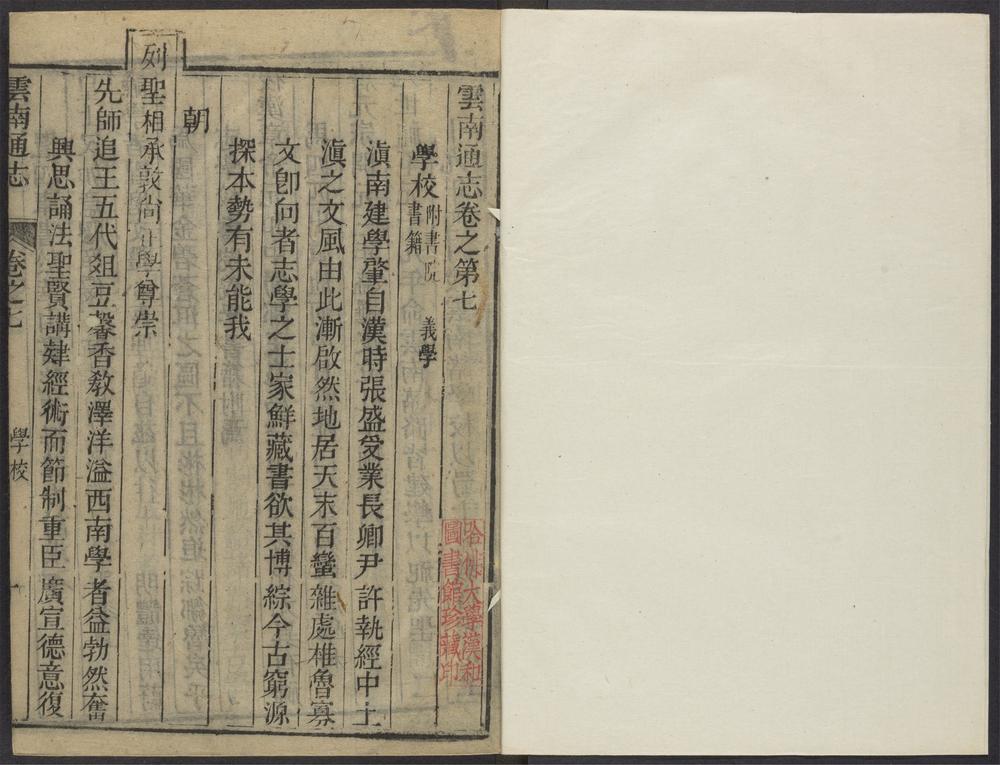 雲南通志卷之第七
學校 附書院 義學 書籍
滇南建學肇自漢時張盛受業長卿尹許執經中土
滇之文風由此漸啟然地居天末百蠻雜處椎魯寡
文卽向者志學之士家鮮藏書欲其博綜今古窮源
探本勢有未能我
朝
列聖相承敦尚正學尊崇
先師追王五代俎豆馨香敎澤洋溢西南學者益勃然奮
興思誦法聖賢講肄經術而節制重臣廣宣德意復
雲南通志 卷之七 學校 一
哈佛大學漢和
圖書館珍藏印